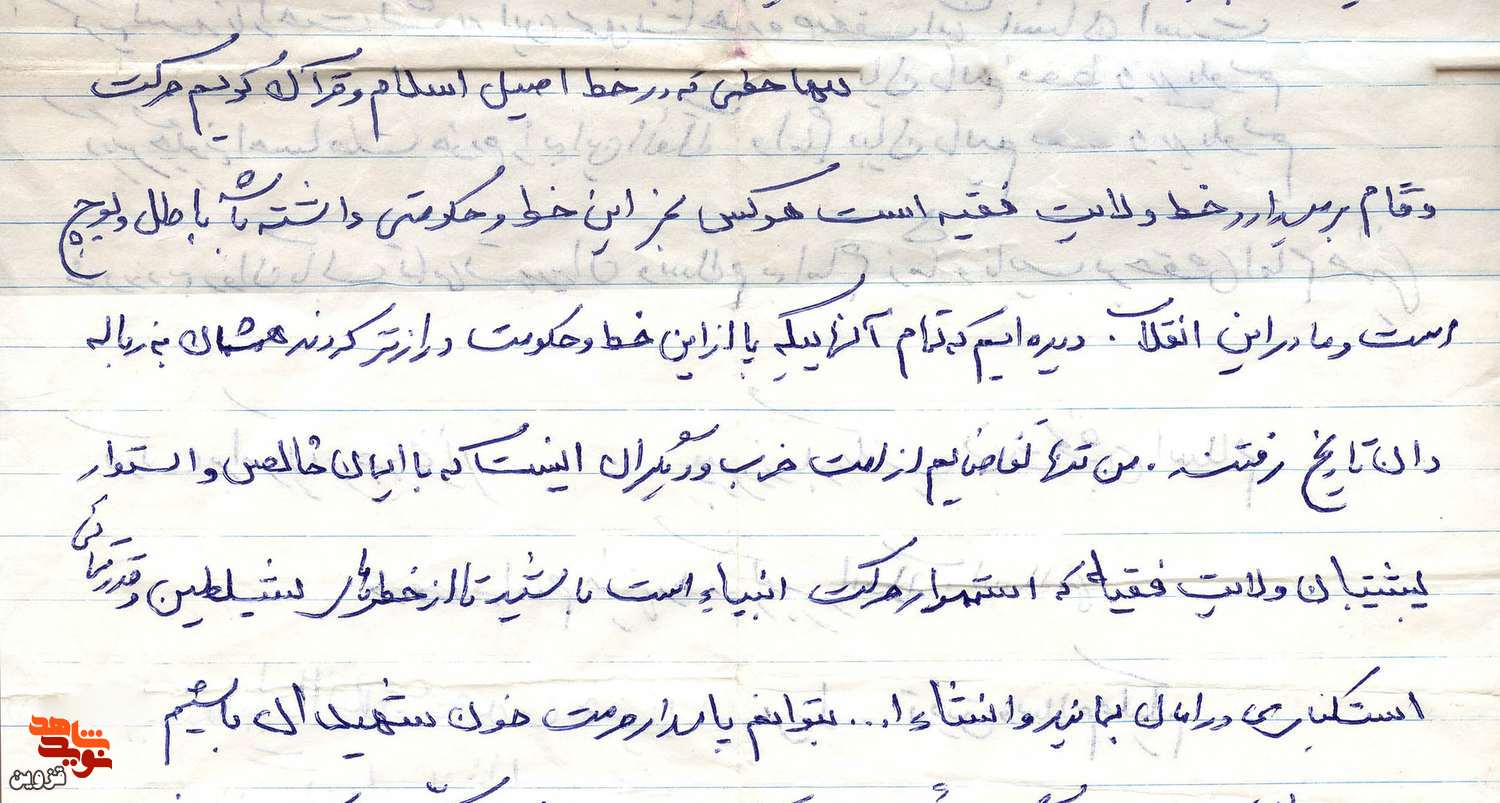 تنها خطی که در خط اصیل اسلام و قرآن کریم حرکت
و گام برمیدارد خط ولایت فقیه است هرکس بجز این خط و حکومتی داشته باشد باطل و پوچ
است و ما در این انقلاب دیده ایم که تمام آنهاییکه پا از این خط و حکومت درازتر کردند همشان به زباله
دان تاریخ رفتند. من تنها تقاضایم از امت حزب و دیگران اینست که با ایمان خالص و استوار
پشتیبان ولایت فقیه که استمرار حرکت انبیاء است باشید تا از خطرهای شیاطین و قدرتهای
استکباری در امان بمانید و انشاء ا... بتوانیم پاسدار حرمت خون شهیدان باشیم
نوید شاهد
قزوین